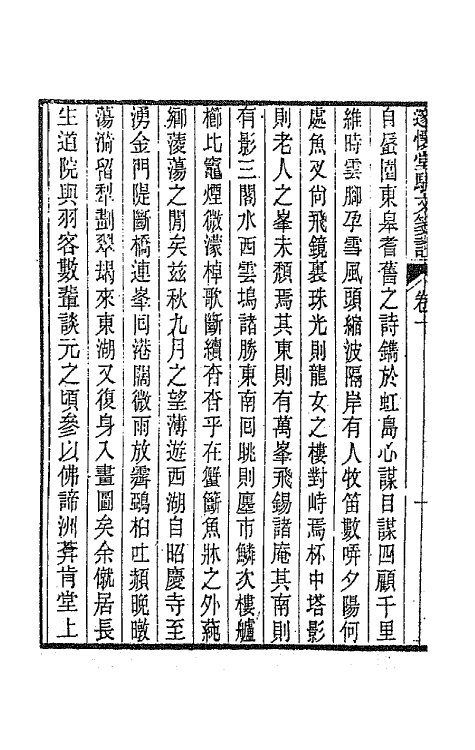 邃懷堂駢文箋註 卷
自蜃圖東皋耆舊之詩鐫於虹島心謀目謀四顧千里
維時雲腳孕雪風頭縮波隔岸有人牧笛數哢夕陽何
處魚叉尙飛鏡裏珠光則龍女之樓對峙焉杯中塔影
則老人之峯未頹焉其東則有萬峯飛錫諸庵其南則
有影三閣水西雲塢諸勝東南囘眺則廛市鱗次樓艫
櫛比竈煙微濛棹歌斷續杳杳乎在蟹籪魚牀之外蒓
鄕菱蕩之閒矣茲秋九月之望薄遊西湖自昭慶寺至
湧金門隄斷橋連峯囘港闊微雨放霽鵶桕吐頳晩暾
蕩漪留犁劃翠朅來東湖又復身入畫圖矣余僦居長
生道院與羽客數輩談元之頃參以佛諦洲葬肯堂上